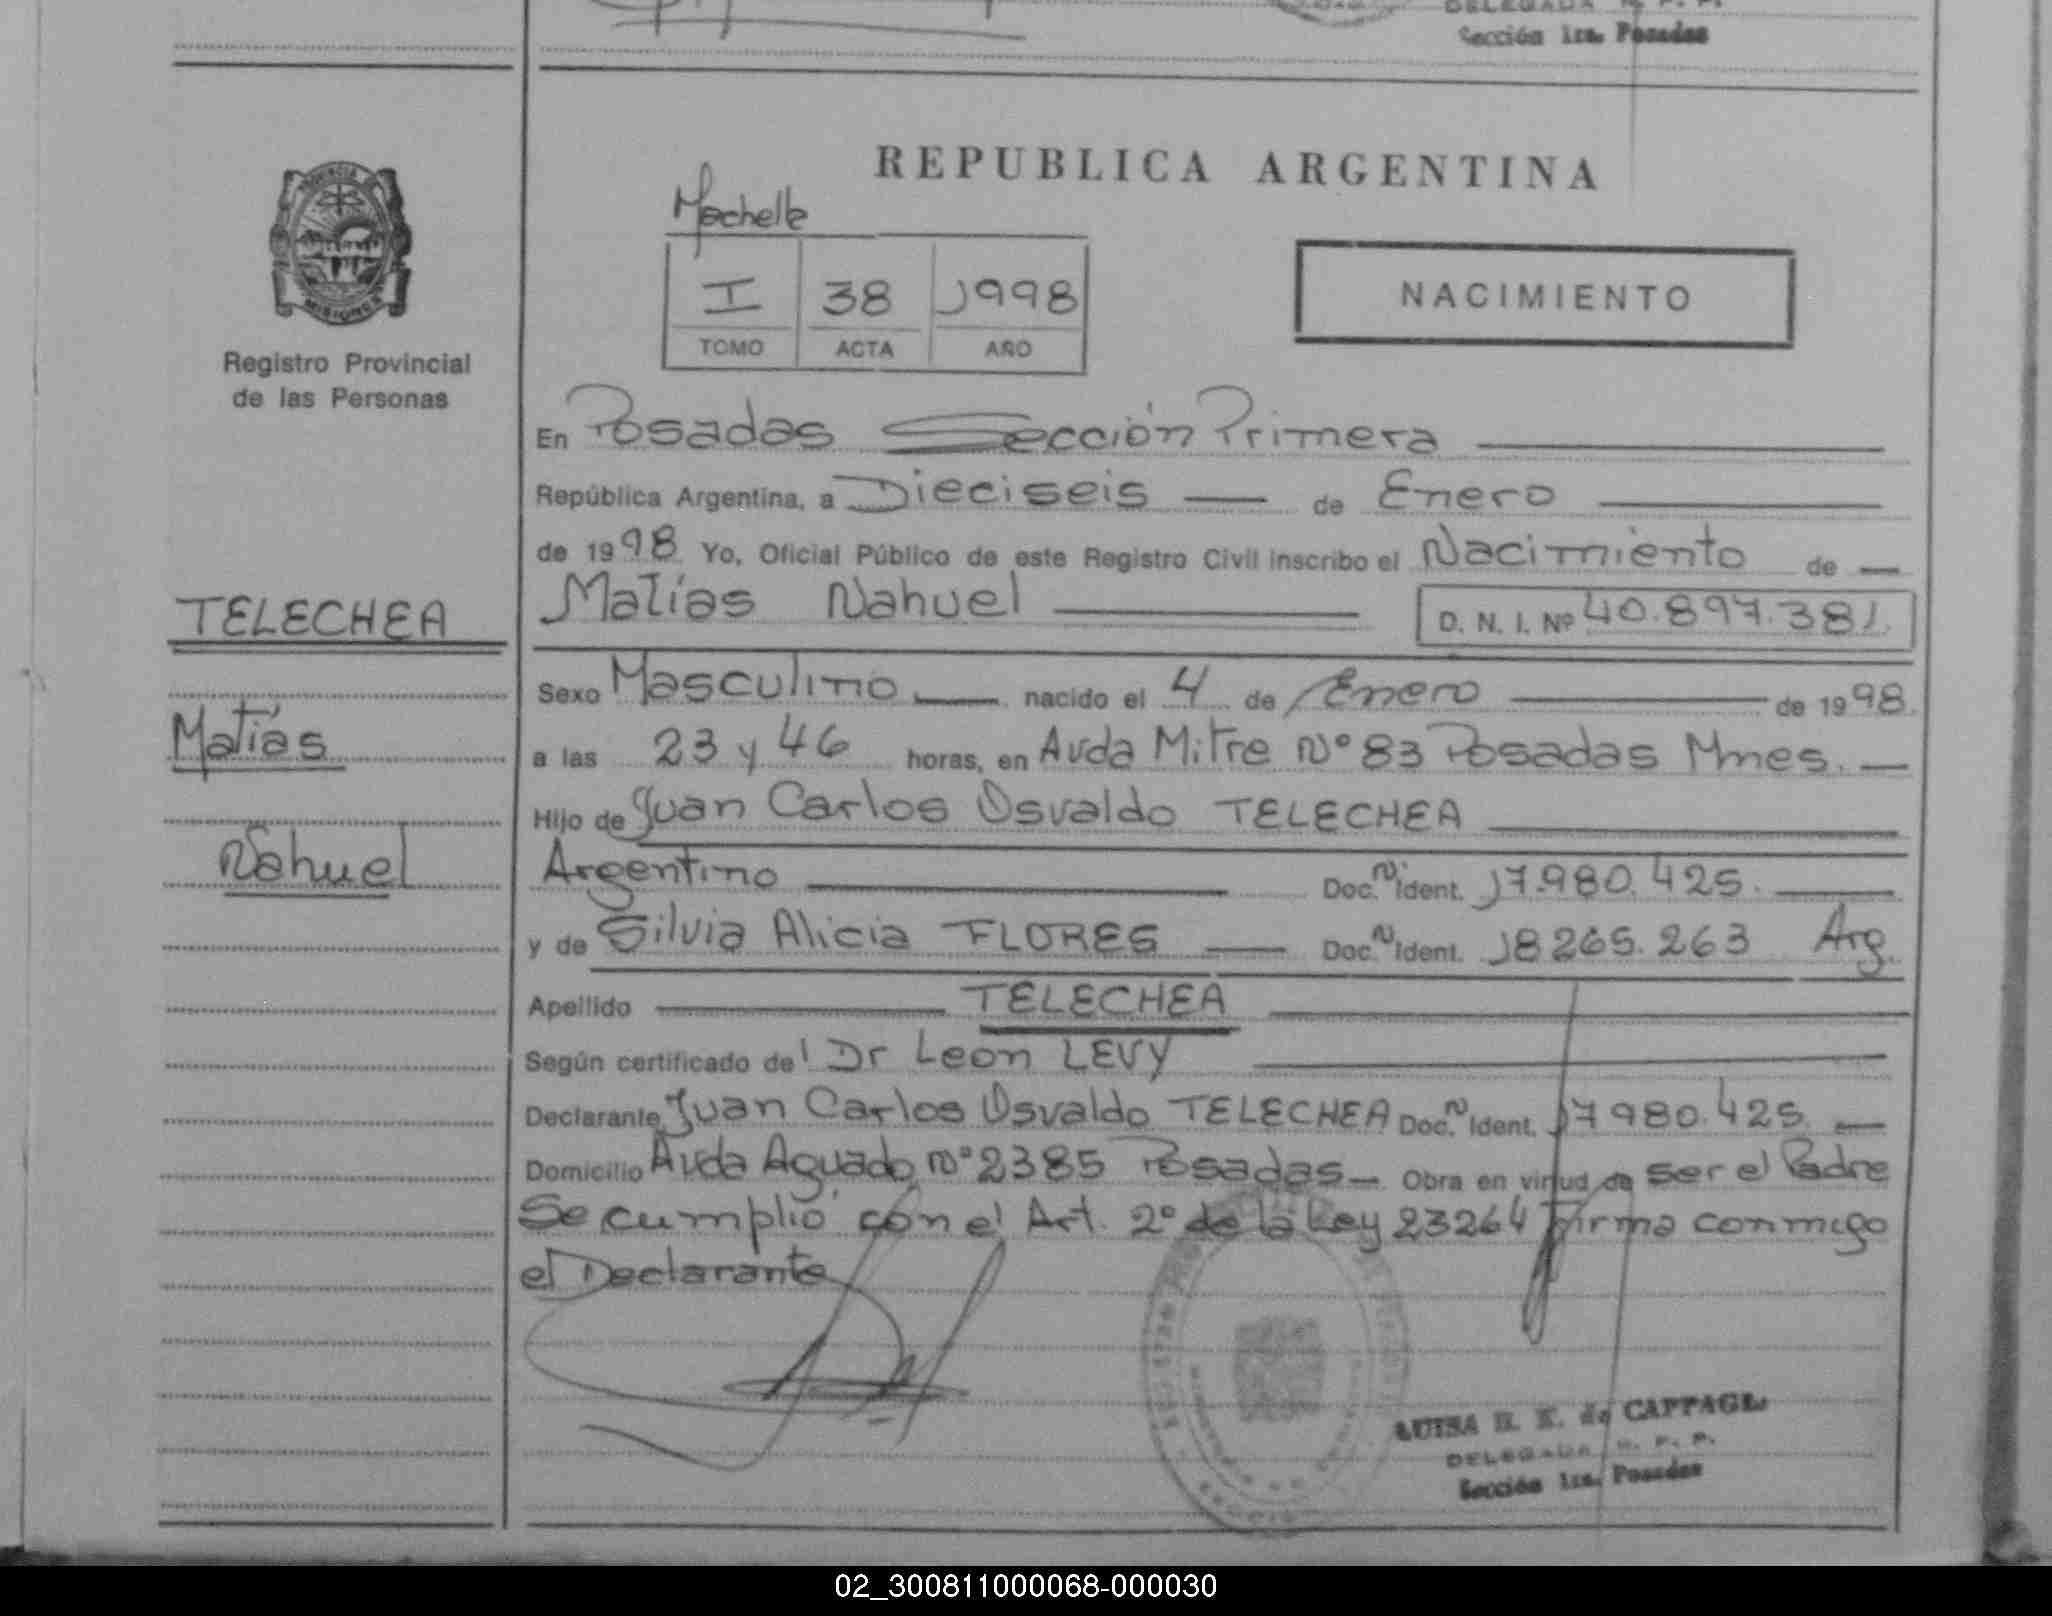 DELEGADA R. P. P.
Sección 1ra. Posadas
REPUBLICA ARGENTINA
NACIMIENTO
I 38 1998
TOMO ACTA AÑO
PROVINCIA DE
MISIONES
Registro Provincial
de las Personas
TELECHEA
Matías
Nahuel
En Posadas Sección Primera
República Argentina, a Dieciseis de Enero
de 1998 Yo, Oficial Público de este Registro Civil inscribo el Nacimiento de
Matías Nahuel D. N. I. Nº 40.897.381.
Sexo Masculino nacido el 4 de Enero de 1998.
a las 23 y 46 horas, en Avda Mitre Nº 83 Posadas Mnes.
Hijo de Juan Carlos Osvaldo TELECHEA
Argentino Doc. N Ident. 17.980.425.
y de Silvia Alicia FLORES Doc. N Ident. 18265.263 Arg.
Apellido TELECHEA
Según certificado del Dr Leon LEVY
Declarante Juan Carlos Osvaldo TELECHEA Doc. N Ident. 17980.425.
Domicilio Avda Aguado Nº 2385 Posadas Obra en virtud de ser el Padre
Se cumplió con el Art. 2º de la Ley 23264 Firma conmigo
el Declarante
LUISA
DELEGADA R. P. P.
Sección 1ra. Posadas
02_300811000068-000030